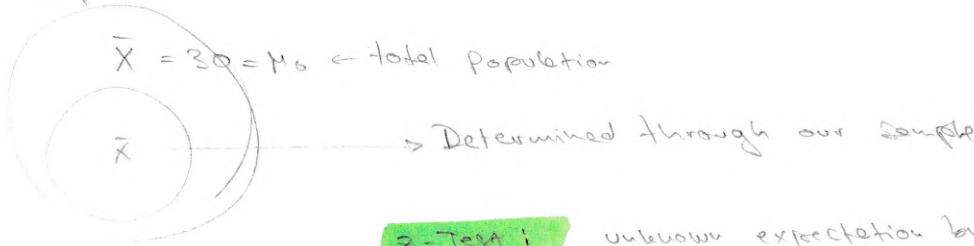 X̄ = 30 = μ₀ ← total population
x̄ → Determined through our sample
unknown expectation